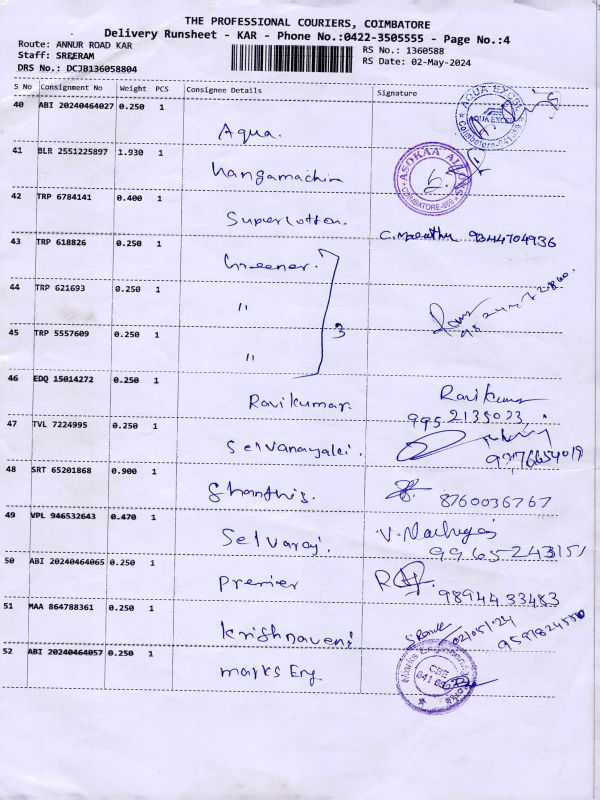 THE PROFESSIONAL COURIERS, COIMBATORE
Delivery Runsheet - KAR - Phone No.:0422-3505555 - Page No.:4
Route: ANNUR ROAD KAR
RS No.: 1360588
Staff: SREERAM
RS Date: 02-May-2024
DRS No.: DCJB136058804
S No Consignment No Weight PCS Consignee Details Signature
40 ABI 20240464027 0.250 1
Aqua.
AQUA EXCEL
41 BLR 2551225897 1.930 1
COIMBATORE-659
42 TRP 6784141 0.400 1
Supercotton.
9344704936
43 TRP 618826 0.250 1
Greener.
44 TRP 621693 0.250 1
"
45 TRP 5557609 0.250 1
" 3
46 EDQ 15014272 0.250 1
Ravikumar. Ravikumar
47 TVL 7224995 0.250 1
995 2135023
Selvanayaki.
48 SRT 65201868 0.900 1
Shanthis. 8760036767
49 VPL 946532643 0.470 1
Selvaraj.
9965243151
50 ABI 20240464065 0.250 1
Premier
9894433483
51 MAA 864788361 0.250 1
Krishnaveni 02/05/24
52 ABI 20240464057 0.250 1
Marks Eng.